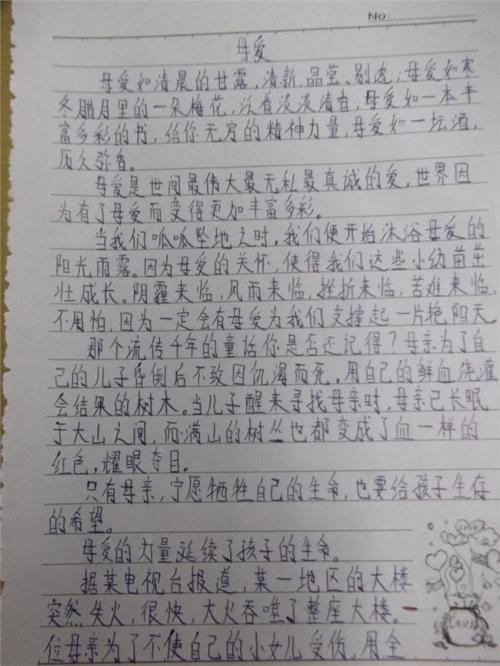 No:
母爱
母爱如清晨的甘露,清新、晶莹、剔透;母爱如寒
冬腊月里的一朵梅花,沃着淡淡清香,母爱如一本丰
富多彩的书,给你无穷的精神力量,母爱如一坛酒,
历久弥香。
母爱是世间最伟大最无私最真诚的爱,世界因
为有了母爱而变得更加丰富多彩。
当我们呱呱坠地之时,我们便开始沐浴母爱的
阳光雨露。因为母爱的关怀,使得我们这些小幼苗茁
壮成长。阴霾来临,风雨来临,挫折来临,苦难来临,
不用怕,因为一定会有母爱为我们支撑起一片艳阳天。
那个流传千年的童话你是否还记得?母亲为了自
己的儿子昏倒后不致因饥渴而死,用自己的鲜血浇灌
会结果的树木。当儿子醒来寻找母亲时,母亲已长眠
于大山之间,而满山的树丛也都变成了血一样的
红色,耀眼夺目。
只有母亲,宁愿牺牲自己的生命,也要给孩子生存
的希望。
母爱的力量延续了孩子的生命。
据某电视台报道,某一地区的大楼
突然失火,很快,大火吞噬了整座大楼。一
位母亲为了不使自己的小女儿受伤,用全